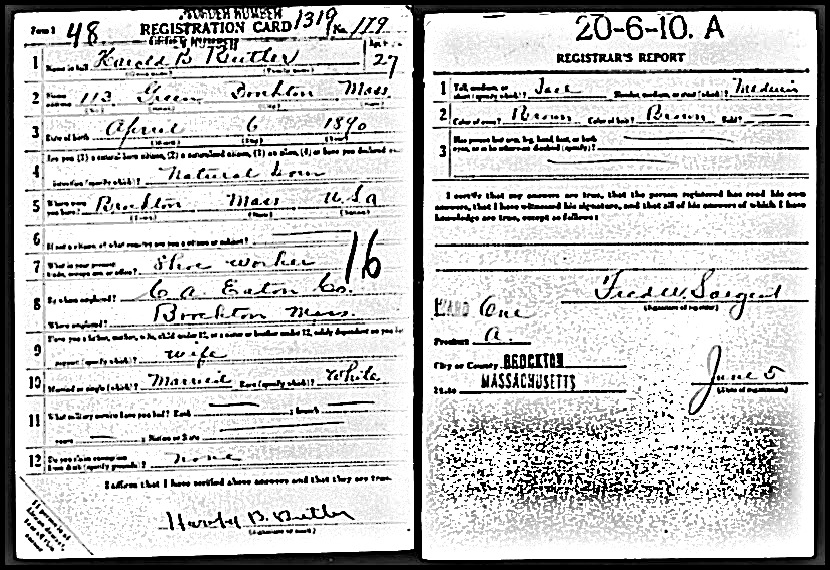 ORDER NUMBER
Form 1 48 REGISTRATION CARD 1319 No. 179
ORDER NUMBER
1 Name in full Harold B Butler 27
(Given name) (Family name)
2 Home address 113 Green Brockton Mass
3 Date of birth April 6 1890
(Month) (Day) (Year)
4 Are you (1) a natural born citizen, (2) a naturalized citizen, (3) an alien, (4) or have you declared your
intention (specify which)? Natural born
5 Where were you born? Brockton Mass U.S.A
(Town) (State) (Nation)
6 If not a citizen, of what country are you a citizen or subject?
7 What is your present trade, occupation, or office? Shoe worker 16
8 By whom employed? C. A. Eaton Co.
Where employed? Brockton Mass.
9 Have you a father, mother, wife, child under 12, or a sister or brother under 12, solely dependent on you for
support (specify which)? Wife
10 Married or single (which)? Married Race (specify which)? White
11 What military service have you had? Rank ; branch
years ; Nation or State
12 Do you claim exemption from draft (specify grounds)? None
I affirm that I have verified above answers and that they are true.
Harold B. Butler
(Signature or mark)
20-6-10. A
REGISTRAR'S REPORT
1 Tall, medium, or short (specify which)? Slender, medium, or stout (which)? Medium
2 Color of eyes? Brown Color of hair? Brown Bald?
3 Has person lost arm, leg, hand, foot, or both
eyes, or is he otherwise disabled (specify)?
I certify that my answers are true, that the person registered has read his own
answers, that I have witnessed his signature, and that all of his answers of which I have
knowledge are true, except as follows:
Fred W. Sargent
(Signature of registrar)
WARD One
Precinct A.
City or County BROCKTON
State MASSACHUSETTS
June 5
(Date of registration)